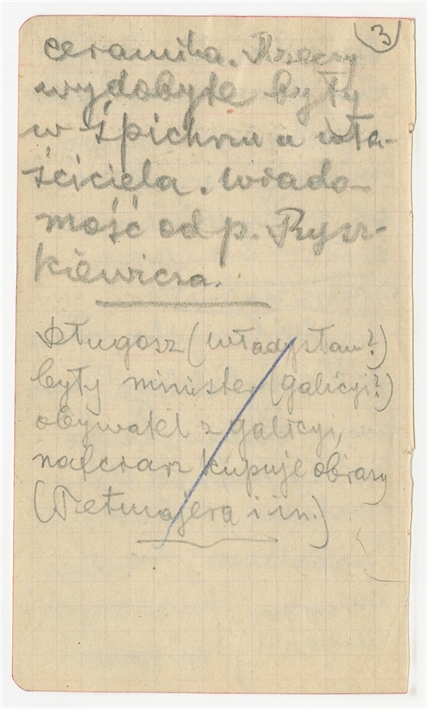 3
ceramika. Rzeczy
wydobyte były
w śpichrzu u wła-
ściciela. Wiado-
mość od p. Rysz-
kiewicza.
Długosz (Władysław?)
były minister (Galicyi?)
obywatel z Galicyi,
nafciarz kupuje obrazy
(Tetmajera i in.)